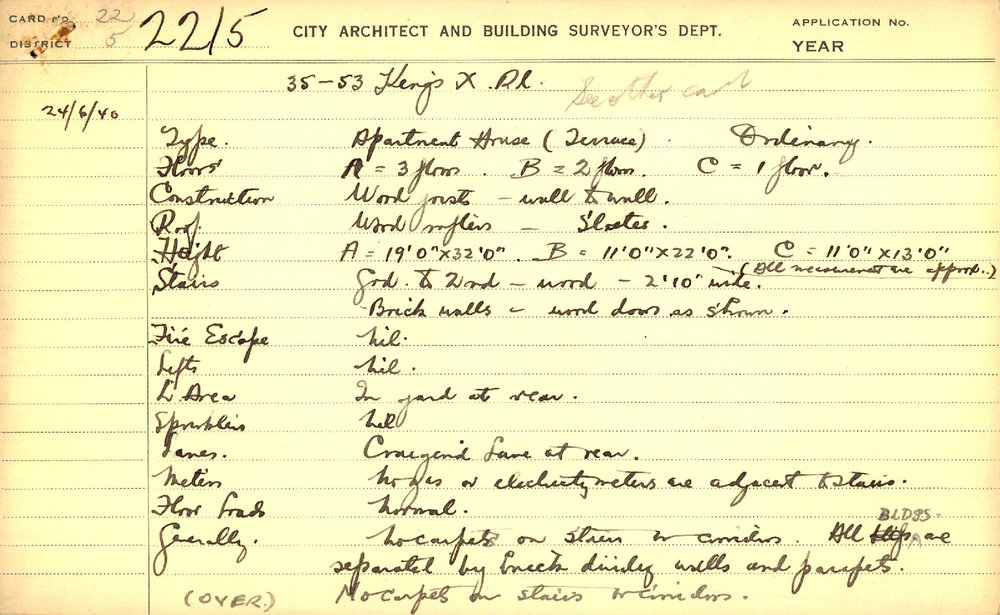 CARD No. 22
DISTRICT 5
22/5
CITY ARCHITECT AND BUILDING SURVEYOR'S DEPT.
APPLICATION No.
YEAR
35-53 Kings X. Rd.
See other card
24/6/40
Type. Apartment House (Terrace). Ordinary.
Floors A = 3 floors. B = 2 floors. C = 1 floor.
Construction Wood joists - wall to wall.
Roof. Wood rafters - Slates.
Height A = 19'0"x32'0". B = 11'0"x22'0". C = 11'0"x13'0"
(All measurements are approx.)
Stairs Grd. to 2nd - wood - 2'10" wide.
Brick walls - wood doors as shown.
Fire Escape nil.
Lifts nil.
L Area In yard at rear.
Sprinklers nil
Lanes. Craigend Lane at rear.
Meters No gas or electricity meters are adjacent to stairs.
Floor Loads Normal.
Generally. No carpets on stairs or corridors. All BLDGS. are
separated by brick dividing walls and parapets.
(OVER.) No carpets on stairs or corridors.